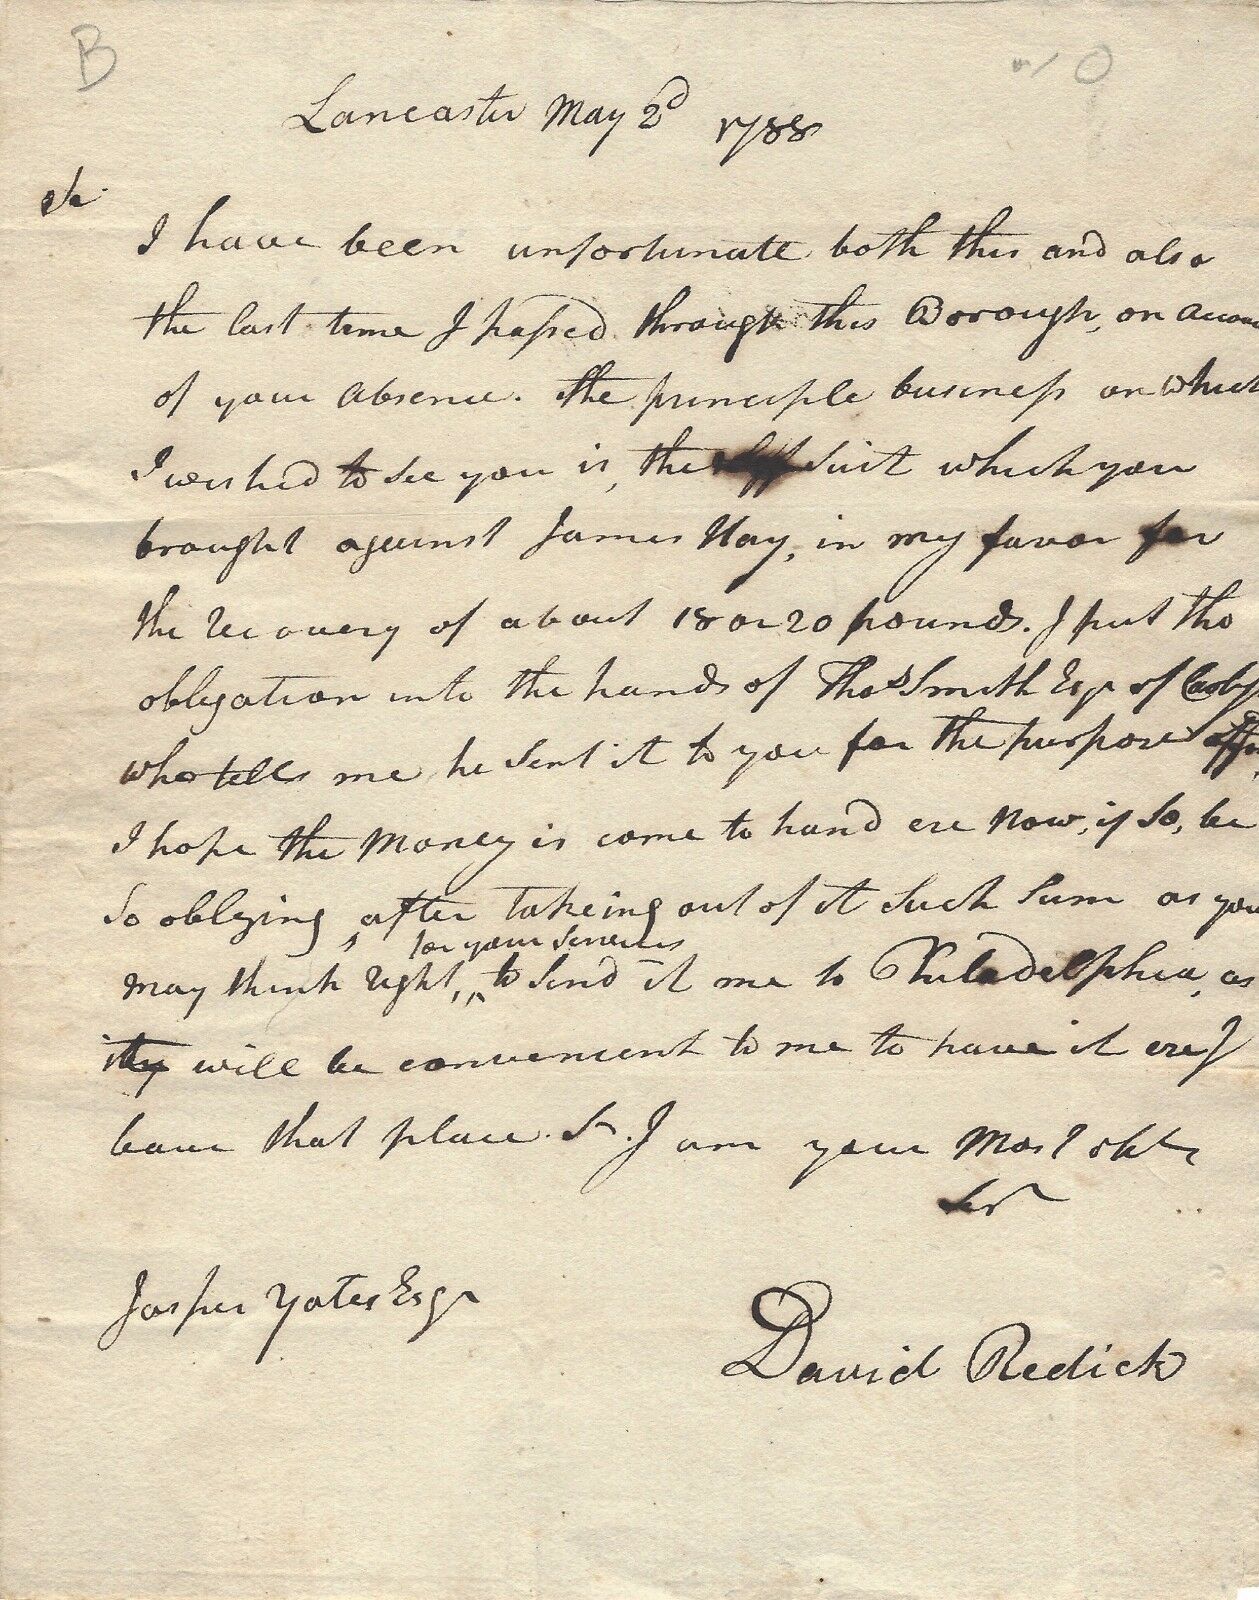 B
Lancaster May 2d 1788
Sir
I have been unfortunate both this and also
the last time I passed through this Borough, on Accou
of your absence. The principle business on which
I wished to see you is, the Suit which you
brought against James Hay, in my favor for
the recovery of about 18 or 20 pounds. I put the
obligation into the hands of Thos Smith Esqr of
who tells me he sent it to you for the purpose
I hope the Money is come to hand ere now, if So, be
So obliging, after takeing out of it Such Sum as you
for your Services
may think right, to Send it me to Philadelphia, as
it will be convenient to me to have it ere I
leave that place. Sr. I am your Most obt
Servt
Jasper Yates Esqr
David Redick